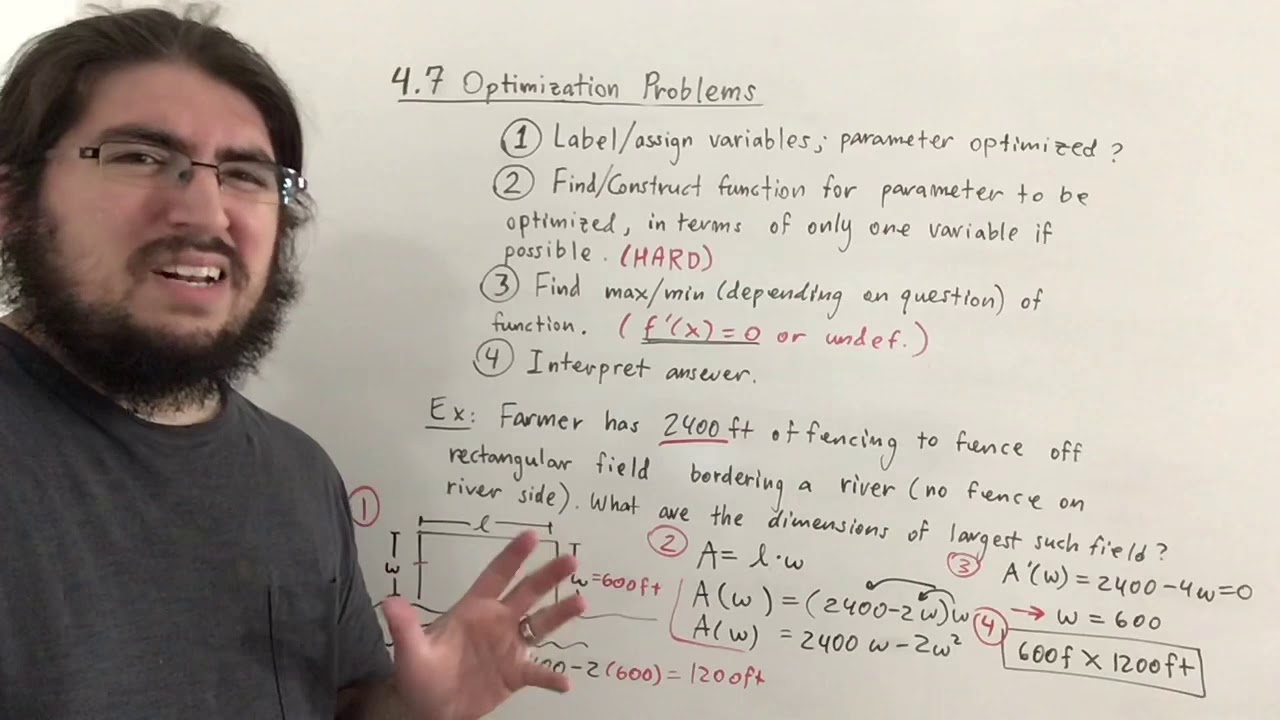 4.7 Optimization Problems
① Label/assign variables; parameter optimized?
② Find/Construct function for parameter to be
optimized, in terms of only one variable if
possible. (HARD)
③ Find max/min (depending on question) of
function. (f'(x)=0 or undef.)
④ Interpret answer.
Ex: Farmer has 2400 ft of fencing to fence off
rectangular field bordering a river (no fence on
river side). What are the dimensions of largest such field?
①
l
w
w=600ft
-2(600)=1200ft
②
A= l·w
A(w)=(2400-2w)w
A(w) =2400w-2w²
③
A'(w)=2400-4w=0
→ w=600
④
600f x 1200ft